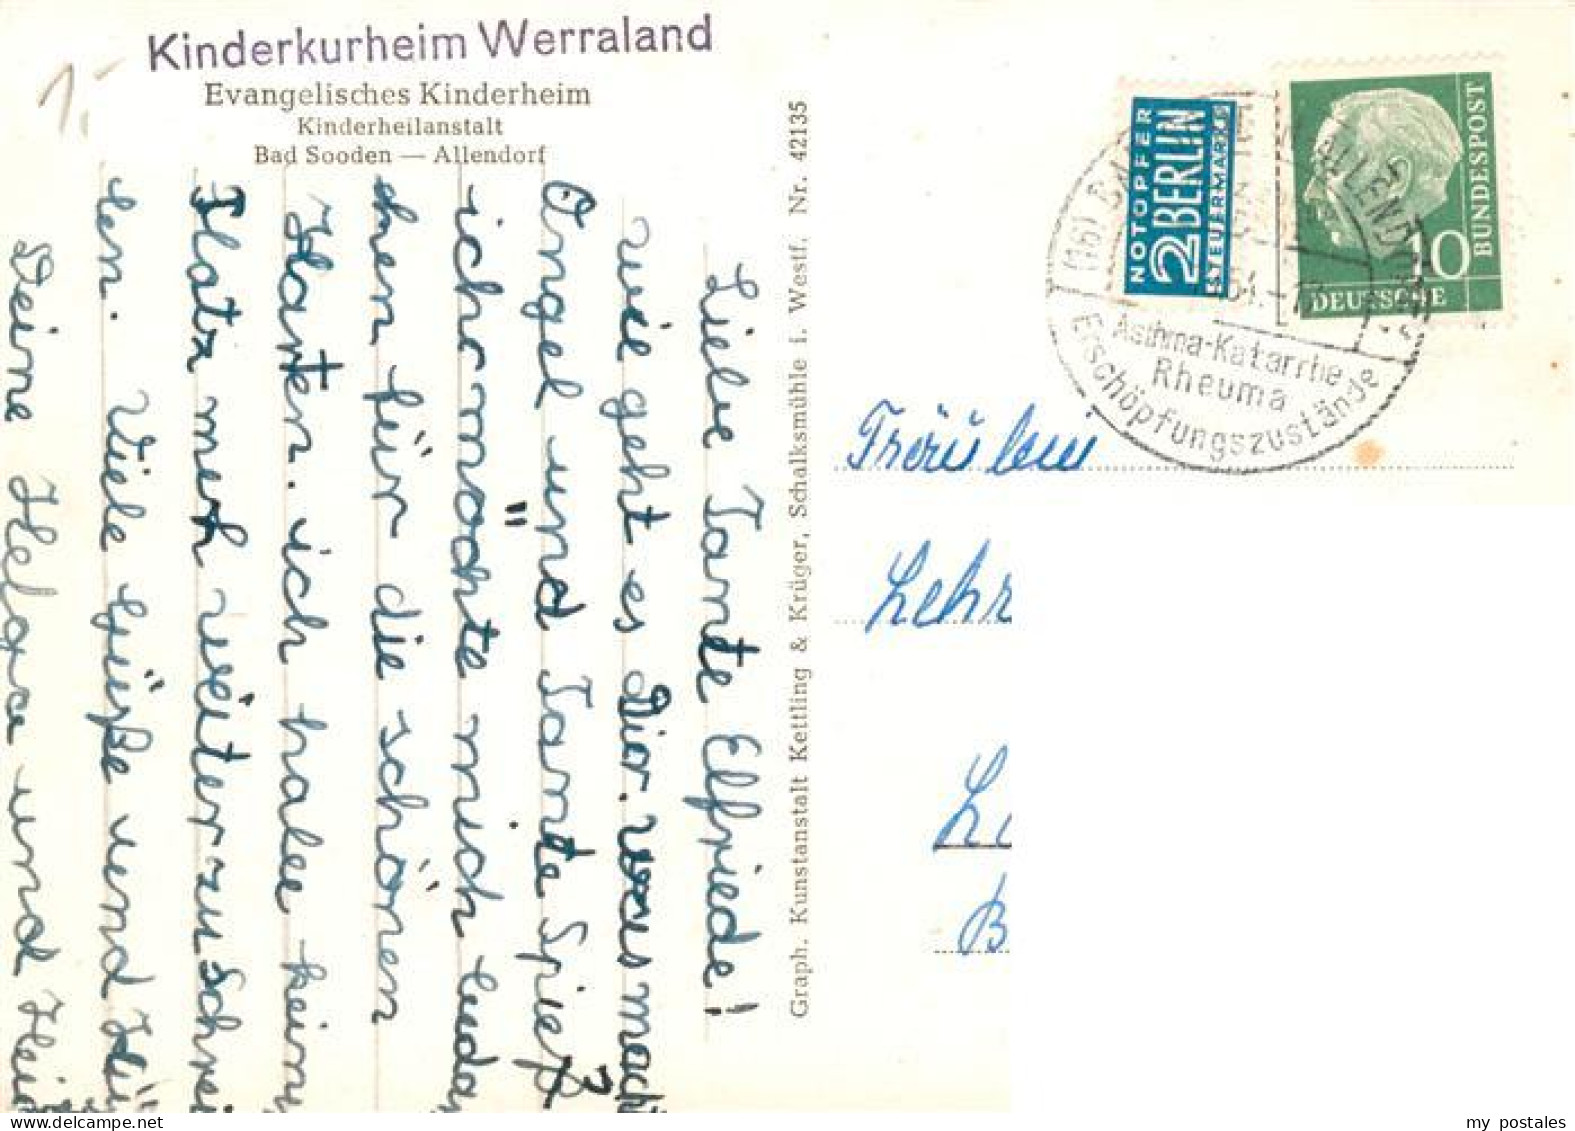 Kinderkurheim Werraland
1.-
Evangelisches Kinderheim
Kinderheilanstalt
Bad Sooden — Allendorf
Liebe Tante Elfriede!
wie geht es Dir. was mach
Öngel und Tante Spieß?
ich mochte mich beda
chen für die schönen
Karten. ich habe keine
Platz mehr weiter zu schrei
ben. Viele Grüße und Kü
Deine Helga und Hei
Graph. Kunstanstalt Kettling & Krüger, Schalksmühle i. Westf. Nr. 42135
NOTOPFER
2 BERLIN
STEUERMARKE
DEUTSCHE
BUNDESPOST
10
(16) BA ALLENDORF
Asthma-Katarrhe
Rheuma
Erschöpfungszustände
Fräulein
Lehr
B
my postales